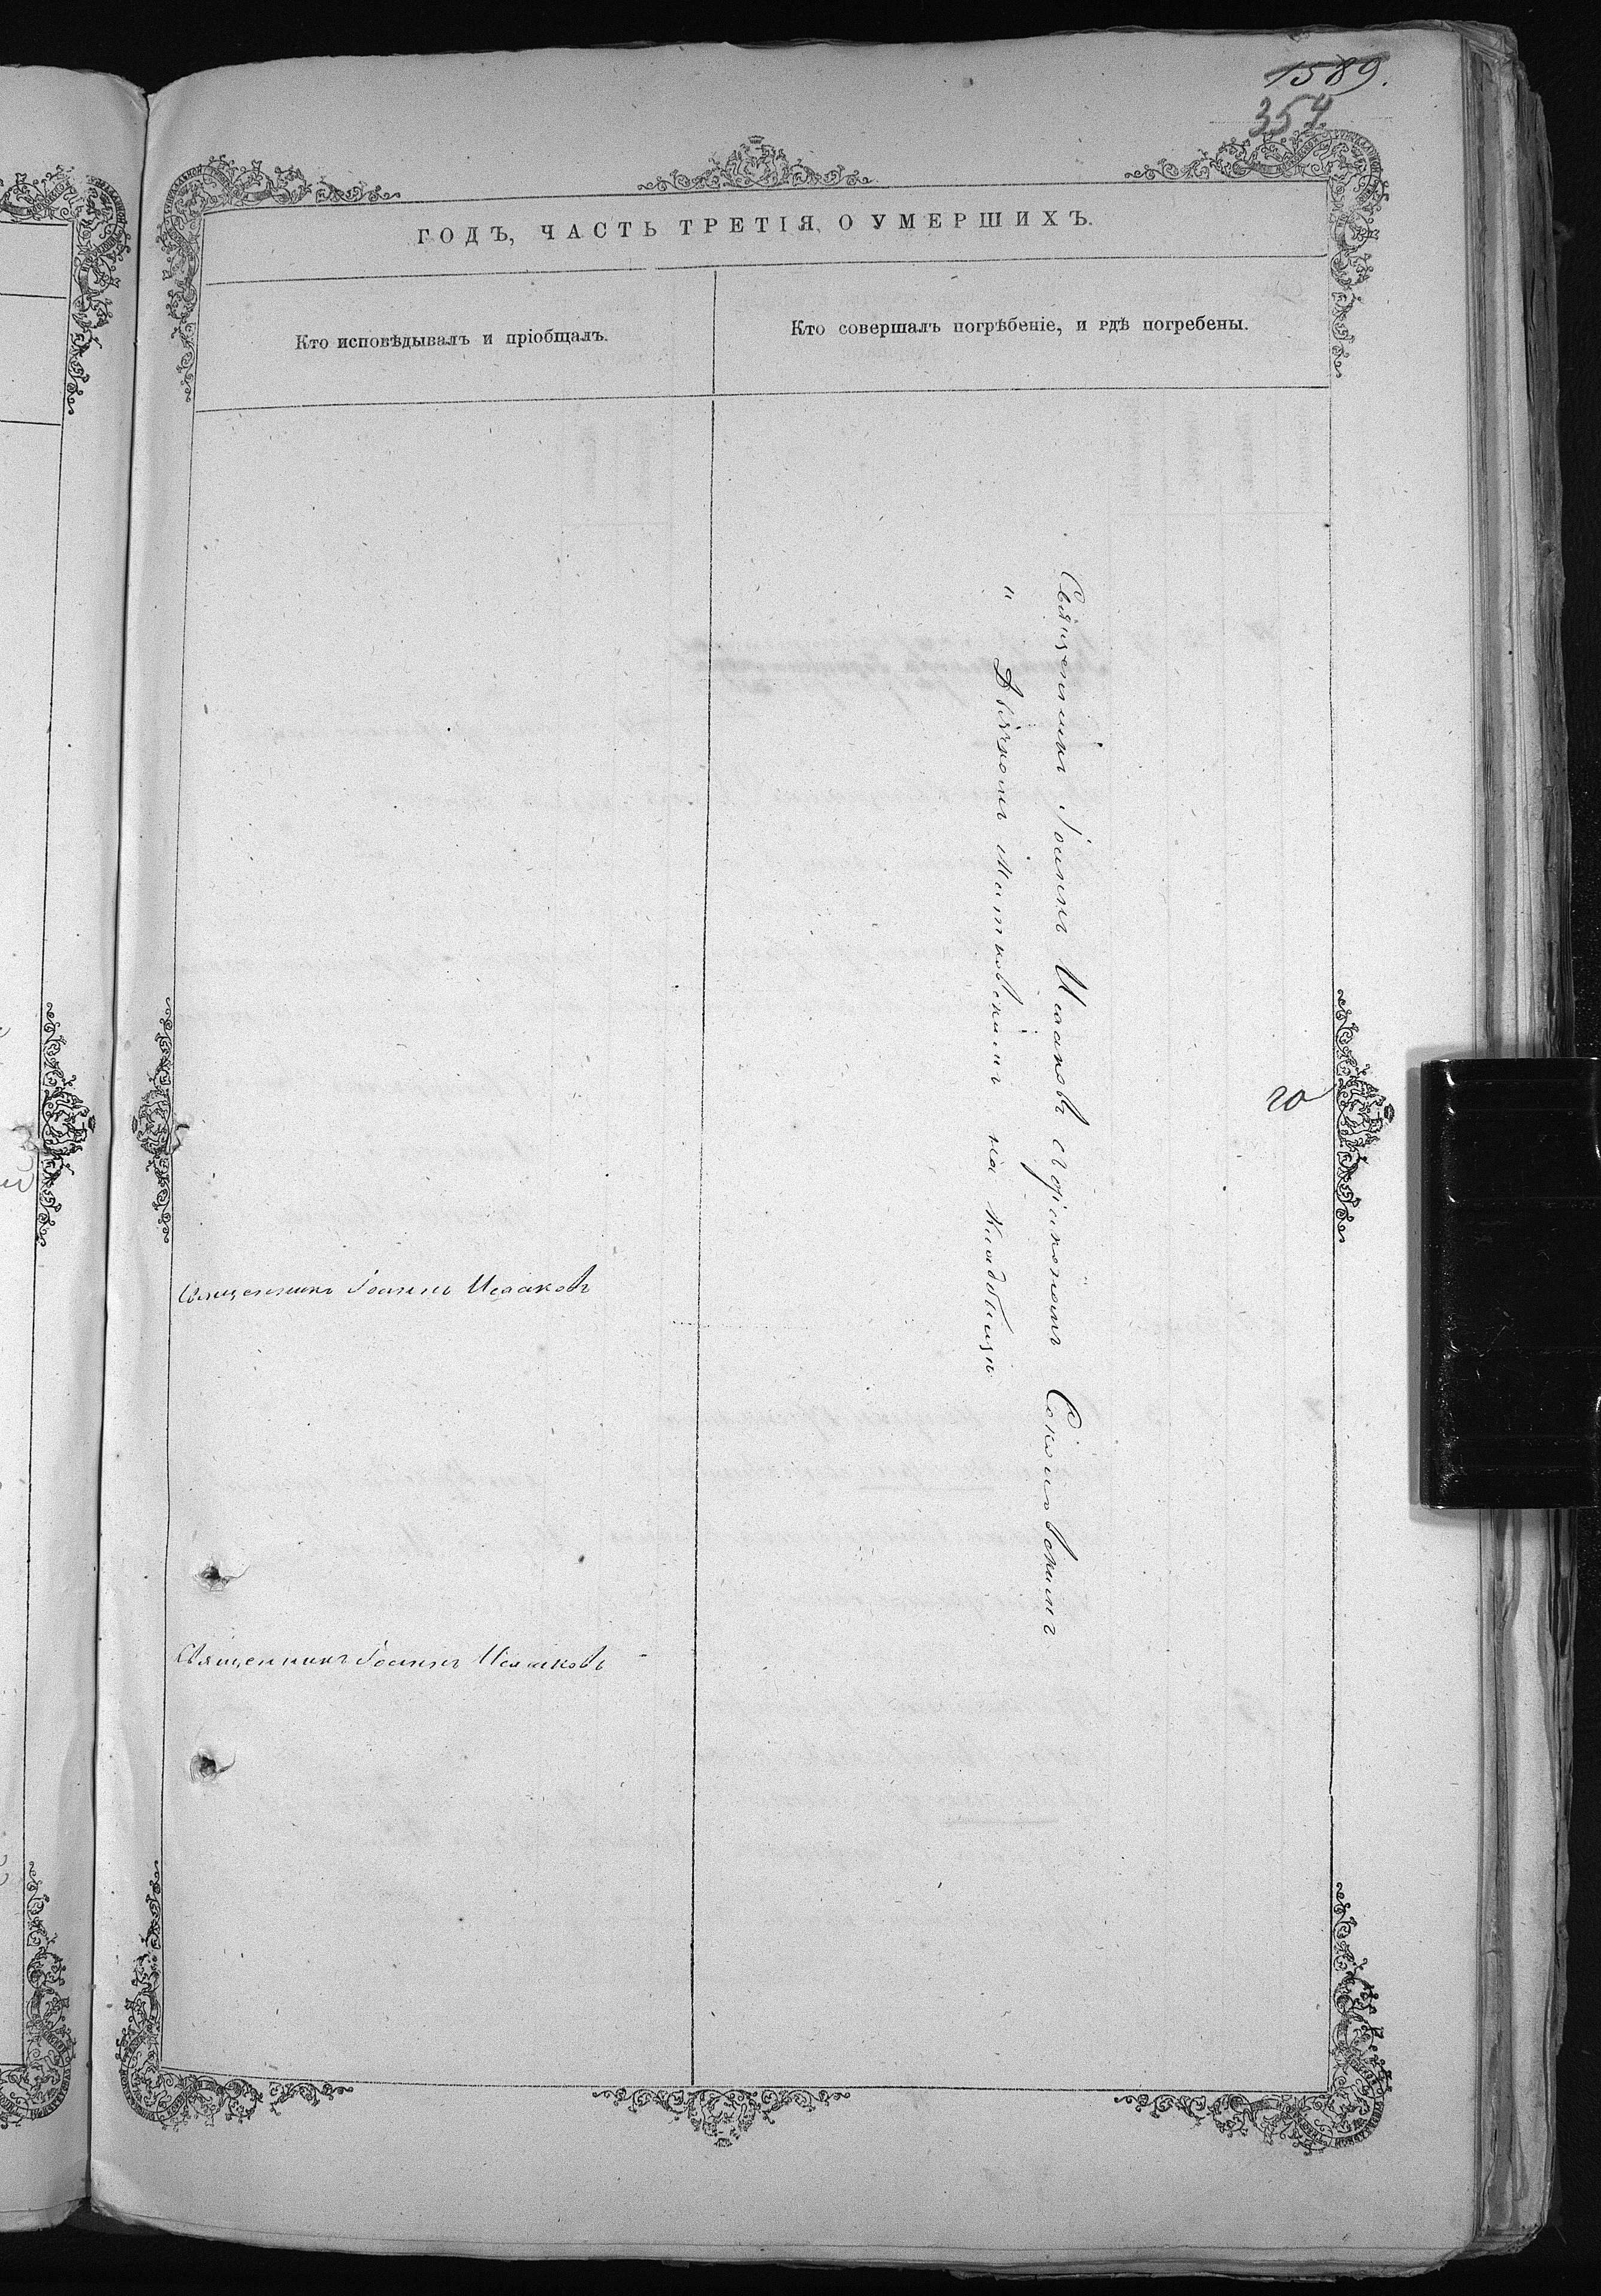 1589.
354
ГОДЪ, ЧАСТЬ ТРЕТІЯ, О УМЕРШИХЪ.
Кто исповѣдывалъ и пріобщалъ.
Кто совершалъ погрѣбеніе, и гдѣ погребены.
Священникъ Іоаннъ Исааковъ
Священникъ Іоаннъ Исааковъ
Священникъ Іоаннъ Исааковъ съ діакономъ Соколовскимъ
и дьячкомъ Митковскимъ на кладбищѣ
го